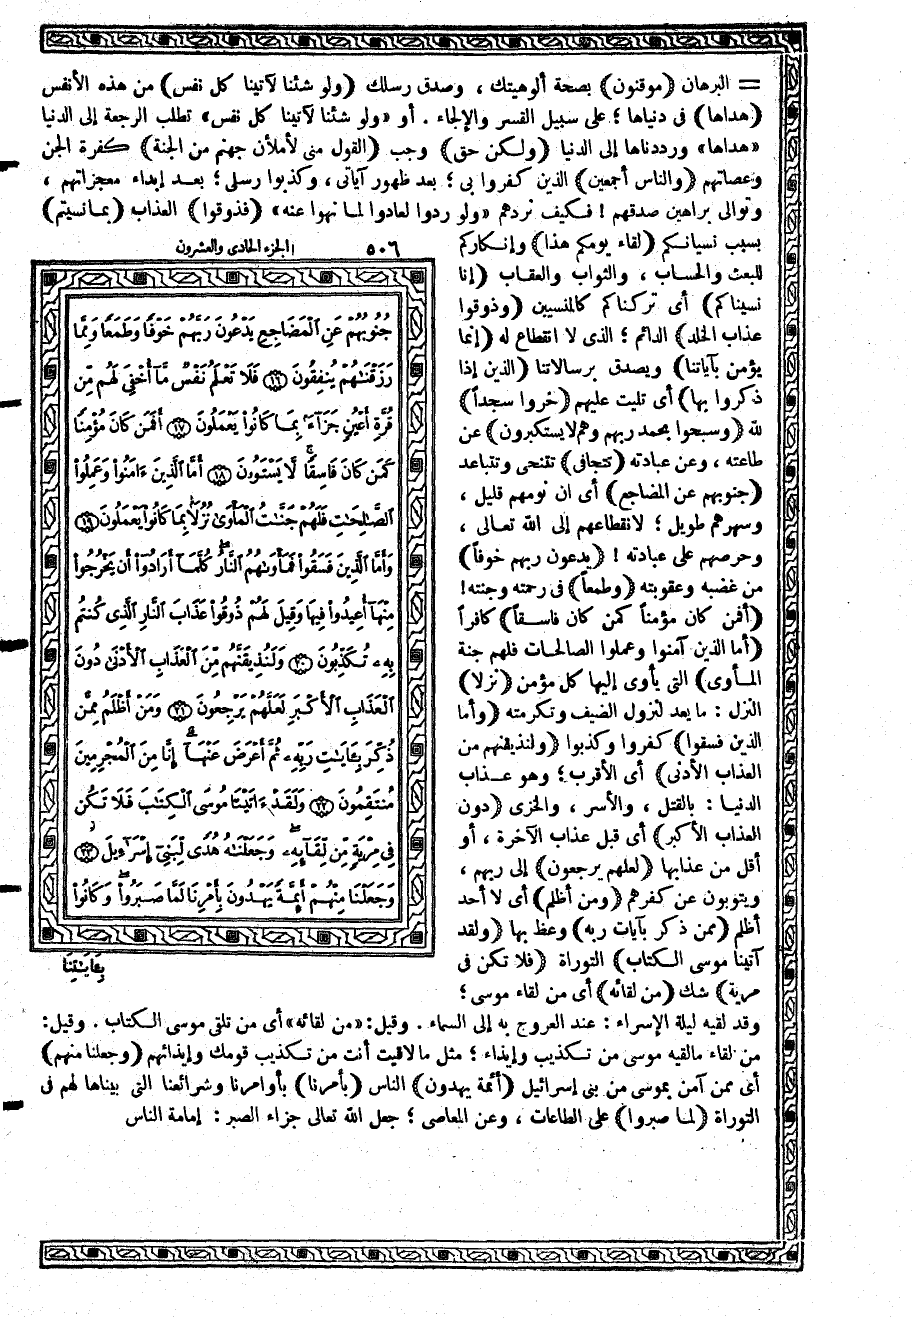 = البرهان (موقنون) بصحة ألوهيتك ، وصدق رسلك (ولو شئنا لآتينا كل نفس) من هذه الأنفس
(هداها) فى دنياها ؛ على سبيل القسر والإلجاء . أو «ولو شئنا لآتينا كل نفس» تطلب الرجعة إلى الدنيا
«هداها» ورددناها إلى الدنيا (ولكن حق) وجب (القول منى لأملأن جهنم من الجنة) كفرة الجن
وعصاتهم (والناس أجمعين) الذين كفروا بى ؛ بعد ظهور آياتى ، وكذبوا رسلى ؛ بعد إبداء معجزاتهم ،
وتوالى براهين صدقهم ! فكيف نردهم «ولو ردوا لعادوا لما نهوا عنه» (فذوقوا) العذاب (بما نسيتم)
بسبب نسيانكم (لقاء يومكم هذا) وإنكاركم
للبعث والحساب ، والثواب والعقاب (إنا
نسيناكم) أى تركناكم كالمنسيين (وذوقوا
عذاب الخلد) الدائم ؛ الذى لا انقطاع له (إنما
يؤمن بآياتنا) ويصدق برسالاتنا (الذين إذا
ذكروا بها) أى تليت عليهم (خروا سجداً)
لله (وسبحوا بحمد ربهم وهم لا يستكبرون) عن
طاعته ، وعن عبادته (تتجافى) تتنحى وتتباعد
(جنوبهم عن المضاجع) أى ان نومهم قليل ،
وسهرهم طويل ؛ لانقطاعهم إلى الله تعالى ،
وحرصهم على عبادته ! (يدعون ربهم خوفاً)
من غضبه وعقوبته (وطمعاً) فى رحمته وجنته!
(أفمن كان مؤمناً كمن كان فاسقاً) كافراً
(أما الذين آمنوا وعملوا الصالحات فلهم جنة
المأوى) التى يأوى إليها كل مؤمن (نزلا)
النزل : ما يعد لنزول الضيف وتكرمته (وأما
الذين فسقوا) كفروا وكذبوا (ولنذيقنهم من
العذاب الأدنى) أى الأقرب ؛ وهو عذاب
الدنيا : بالقتل ، والأسر ، والخزى (دون
العذاب الأكبر) أى قبل عذاب الآخرة ، أو
أقل من عذابها (لعلهم يرجعون) إلى ربهم ،
ويتوبون عن كفرهم (ومن أظلم) أى لا أحد
أظلم (ممن ذكر بآيات ربه) وعظ بها (ولقد
آتينا موسى الكتاب) التوراة (فلا تكن فى
مرية) شك (من لقائه) أى من لقاء موسى ؛
٥٠٦ الجزء الحادى والعشرون
جُنُوبُهُمْ عَنِ ٱلْمَضَاجِعِ يَدْعُونَ رَبَّهُمْ خَوْفًا وَطَمَعًا وَمِمَّا
رَزَقْنَٰهُمْ يُنفِقُونَ ١٦ فَلَا تَعْلَمُ نَفْسٌ مَّآ أُخْفِيَ لَهُم مِّن
قُرَّةِ أَعْيُنٍ جَزَآءَۢ بِمَا كَانُوا۟ يَعْمَلُونَ ١٧ أَفَمَن كَانَ مُؤْمِنًا
كَمَن كَانَ فَاسِقًا ۚ لَّا يَسْتَوُۥنَ ١٨ أَمَّا ٱلَّذِينَ ءَامَنُوا۟ وَعَمِلُوا۟
ٱلصَّٰلِحَٰتِ فَلَهُمْ جَنَّٰتُ ٱلْمَأْوَىٰ نُزُلًۢا بِمَا كَانُوا۟ يَعْمَلُونَ ١٩
وَأَمَّا ٱلَّذِينَ فَسَقُوا۟ فَمَأْوَىٰهُمُ ٱلنَّارُ ۖ كُلَّمَآ أَرَادُوٓا۟ أَن يَخْرُجُوا۟
مِنْهَآ أُعِيدُوا۟ فِيهَا وَقِيلَ لَهُمْ ذُوقُوا۟ عَذَابَ ٱلنَّارِ ٱلَّذِى كُنتُم
بِهِۦ تُكَذِّبُونَ ٢٠ وَلَنُذِيقَنَّهُم مِّنَ ٱلْعَذَابِ ٱلْأَدْنَىٰ دُونَ
ٱلْعَذَابِ ٱلْأَكْبَرِ لَعَلَّهُمْ يَرْجِعُونَ ٢١ وَمَنْ أَظْلَمُ مِمَّن
ذُكِّرَ بِـَٔايَٰتِ رَبِّهِۦ ثُمَّ أَعْرَضَ عَنْهَآ ۚ إِنَّا مِنَ ٱلْمُجْرِمِينَ
مُنتَقِمُونَ ٢٢ وَلَقَدْ ءَاتَيْنَا مُوسَى ٱلْكِتَٰبَ فَلَا تَكُن
فِى مِرْيَةٍ مِّن لِّقَآئِهِۦ ۖ وَجَعَلْنَٰهُ هُدًى لِّبَنِىٓ إِسْرَٰٓءِيلَ ٢٣
وَجَعَلْنَا مِنْهُمْ أَئِمَّةً يَهْدُونَ بِأَمْرِنَا لَمَّا صَبَرُوا۟ ۖ وَكَانُوا۟
بِـَٔايَٰتِنَا
وقد لقيه ليلة الإسراء : عند العروج به إلى السماء . وقيل: «من لقائه» أى من تلقى موسى الكتاب . وقيل:
من لقاء مالقيه موسى من تكذيب وإيذاء ؛ مثل ما لاقيت أنت من تكذيب قومك وإيذائهم (وجعلنا منهم)
أى ممن آمن بموسى من بنى إسرائيل (أئمة يهدون) الناس (بأمرنا) بأوامرنا وشرائعنا التى بيناها لهم فى
التوراة (لما صبروا) على الطاعات ، وعن المعاصى ؛ جعل الله تعالى جزاء الصبر : إمامة الناس